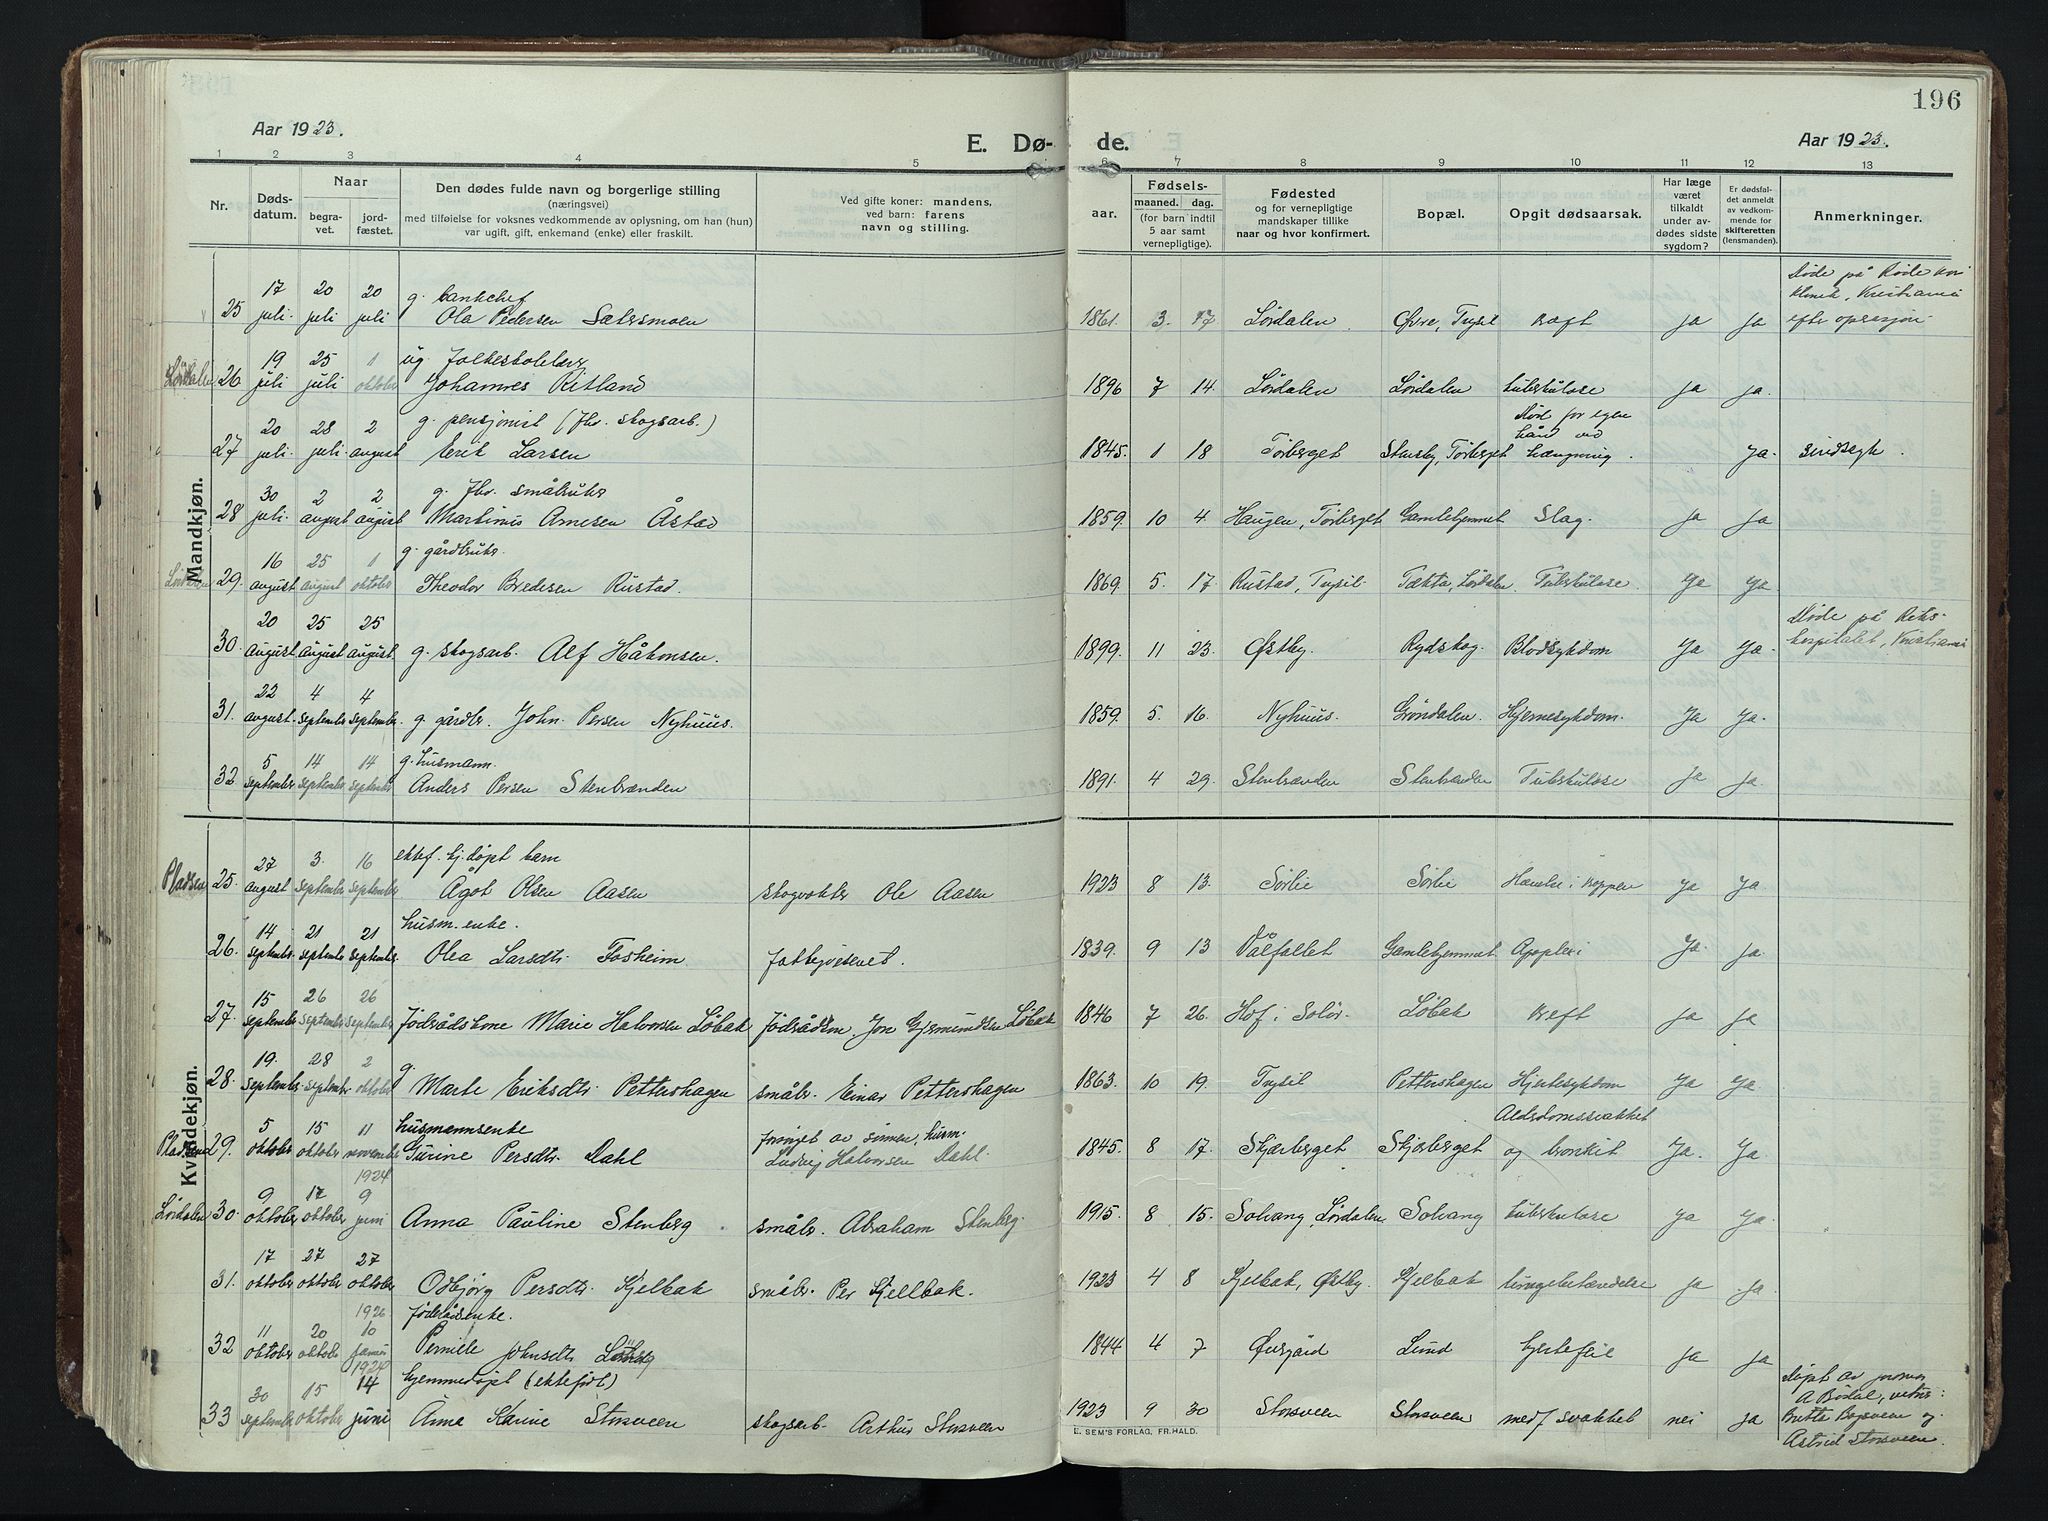 196
Aar 1923.
E. Dø-
de.
Aar 1923.
1 2 3 4 5 6 7 8 9 10 11 12 13
Nr.
Døds-
datum.
Naar
begra-
vet.
jord-
fæstet.
Den dødes fulde navn og borgerlige stilling
(næringsvei)
med tilføielse for voksnes vedkommende av oplysning, om han (hun)
var ugift, gift, enkemand (enke) eller fraskilt.
Ved gifte koner: mandens,
ved barn: farens
navn og stilling.
Fødsels-
aar.
maaned.
dag.
(for barn indtil
5 aar samt
vernepligtige).
Fødested
og for vernepligtige
mandskaper tillike
naar og hvor konfirmert.
Bopæl.
Opgit dødsaarsak.
Har læge
været
tilkaldt
under av-
dødes sidste
sygdom?
Er dødsfal-
det anmeldt
av vedkom-
mende for
skifteretten
(lensmanden).
Anmerkninger.
Mandkjøn.
25 17 juli. 20 juli 20 juli g. bankchef
Ola Pedersen Sætersmoen 1861. 3. 17 Lørdalen Øvre, Trysil ja ja
Døde på Røde kors
klinik, Kristiania
efter operasjon
Lørdalen 26 19 juli 25 juli 1 oktober ug. Folkeskolelærer
Johannes Ritland 1896 7 14. Lørdalen Lørdalen tuberkulose ja ja.
27 20 juli. 28 juli. 2 august g. pensjonist (fhv. skogsarb.)
Erik Larsen 1845. 1 18 Tørberget Stensby, Tørberget Døde for egen
hånd ved
hængning. ja. sindssyk.
28 30 juli. 2 august 2 august g. fhv. småbruker
Martinus Arnesen Åstad 1859. 10 4. Haugen, Tørberget Gamlehjemmet Slag. ja ja
Lørdalen 29. 16 august 25 august 1 oktober g. gårdbruker.
Theodor Bredesen Rustad. 1869. 5. 17 Rustad, Trysil. Tæksta, Lørdalen Tuberkulose. Ja Ja.
30. 20 august 25 august 25 august. g. skogsarb. Alf Håkonsen. 1899. 11 23. Østby. Rydskog. Blodsykdom Ja Ja.
Døde på Riks-
hospitalet, Kristiania
31. 22 august. 4 september 4 september. g. gårdbr. John. Persen Nyhuus. 1859. 5. 16. Nyhuus. Grøndalen. Hjernesykdom. Ja Ja.
32 5 september 14 september 14 september g. husmann.
Anders Persen Stenbrænden 1891. 4 29. Stenbrænden Stenbrænden Tuberkulose Ja Ja.
Kvindekjøn.
Pladsen 25. 27 august 3. september 16 september ektef. hj.døpt barn
Ågot Olsen Aasen skogvokter Ole Aasen 1923 8 13. Sørlie Sørlie Ja Ja.
26. 14 september. 21 september 21 september. husm.enke.
Olea Larsdtr. Fosheim. fattigvesenet. 1839. 9 13 Våfallet Gamlehjemmet Apoplexi Ja. Ja.
27. 15 september 26 september 26 september Føderådskone Marie Halvorsen Løbak Føderådsm. Jon Gjermundsen Løbak 1846 7 26. Hof i Solør. Løbak Kreft ja ja
28. 19. september 28 september. 2 oktober g.
Marte Eriksdtr. Pettershagen småbr. Einar Pettershagen 1863. 10 19. Trysil Pettershagen Hjertesykdom Ja Ja.
Pladsen 29. 5 oktober 15 oktober 11 november husmannsenke
Gurine Persdtr. Dahl forsørget av sønnen, husm.
Ludvig Halvorsen Dahl. 1845. 8 17. Skjærberget Skjærberget Aldersdomssvakhet
og bronkit Ja. Ja.
Lørdalen 30. 9 oktober 17 oktober 1924 9 juni Anna Pauline Stenberg småbr. Abraham Stenberg 1915. 8 15. Solvang, Lørdalen Solvang tuberkulose ja Ja.
31. 17 oktober 27 oktober 27 oktober Odbjørg Persdtr. Kjelbak småbr. Per Kjellbak. 1923 4 8 Kjelbak, Østby. Kjelbak lungebetændelse ja Ja.
32 11 oktober 20 oktober 1926 10 føderådsenke.
Pernille Johnsdtr. 1844 4 7 Øiesgård Lund hjertefeil ja ja
33 30 september 15 oktober 1924 14 juni hjemmedøpt (ektefødt)
Anna Karine Storsveen skogsarb. Arthur Storsveen 1923 9 30 Storsveen Storsveen medf. svakhet nei ja
Døpt av jormor
A Bødal, vitner:
Britte Bogsveen og
Astrid Storsveen.
E. SEM'S FORLAG, FR.HALD.